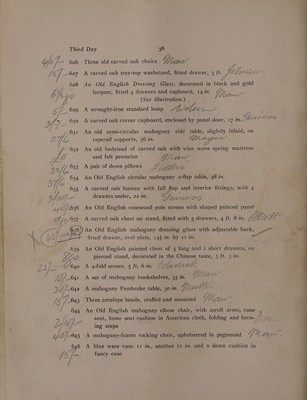 Third Day 36
4/5/- 626 Three old carved oak chairs Maw
15/- 627 A carved oak tray-top washstand, fitted drawer, 3 ft. Johnson
628 An Old English Dressing Glass, decorated in black and gold
lacquer, fitted 4 drawers and cupboard, 14 in. Maw
(See illustration.)
5/- 629 A wrought-iron standard lamp
630 A carved oak corner cupboard, enclosed by panel door, 17 in.
631 An old semi-circular mahogany side table, slightly inlaid, on
tapered supports, 36 in.
632 An old bedstead of carved oak with wire wove spring mattress
and felt protector Maw
633 A pair of down pillows
634 An Old English circular mahogany 2-flap table, 48 in.
635 A carved oak bureau with fall flap and interior fittings, with 5
drawers under, 22 in.
636 An Old English rosewood pole screen with shaped painted panel
637 A carved oak chest on stand, fitted with 5 drawers, 4 ft. 8 in.
638 An Old English mahogany dressing glass with adjustable back,
fitted drawer, oval plate, 14½ in. by 11 in.
639 An Old English painted chest of 3 long and 2 short drawers, on
pierced stand, decorated in the Chinese taste, 3 ft. 3 in.
25/- 640 A 4-fold screen, 5 ft. 6 in.
641 A set of mahogany bookshelves, 33 in. Maw
642 A mahogany Pembroke table, 30 in.
15/- 643 Three antelope heads, stuffed and mounted Maw
644 An Old English mahogany elbow chair, with scroll arms, cane
seat, loose seat cushion in American cloth, folding and form-
ing steps
645 A mahogany-frame rocking chair, upholstered in pegamoid Maw
646 A blue ware vase 11 in., another 11 in. and a down cushion in
15/- fancy case